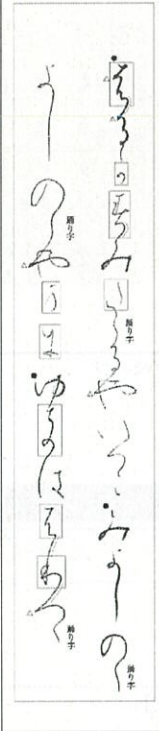 はるかすみたゝるやいつこみよしのゝ
踊り字
踊り字
よしのゝやまにゆきはふりつゝ
踊り字
踊り字